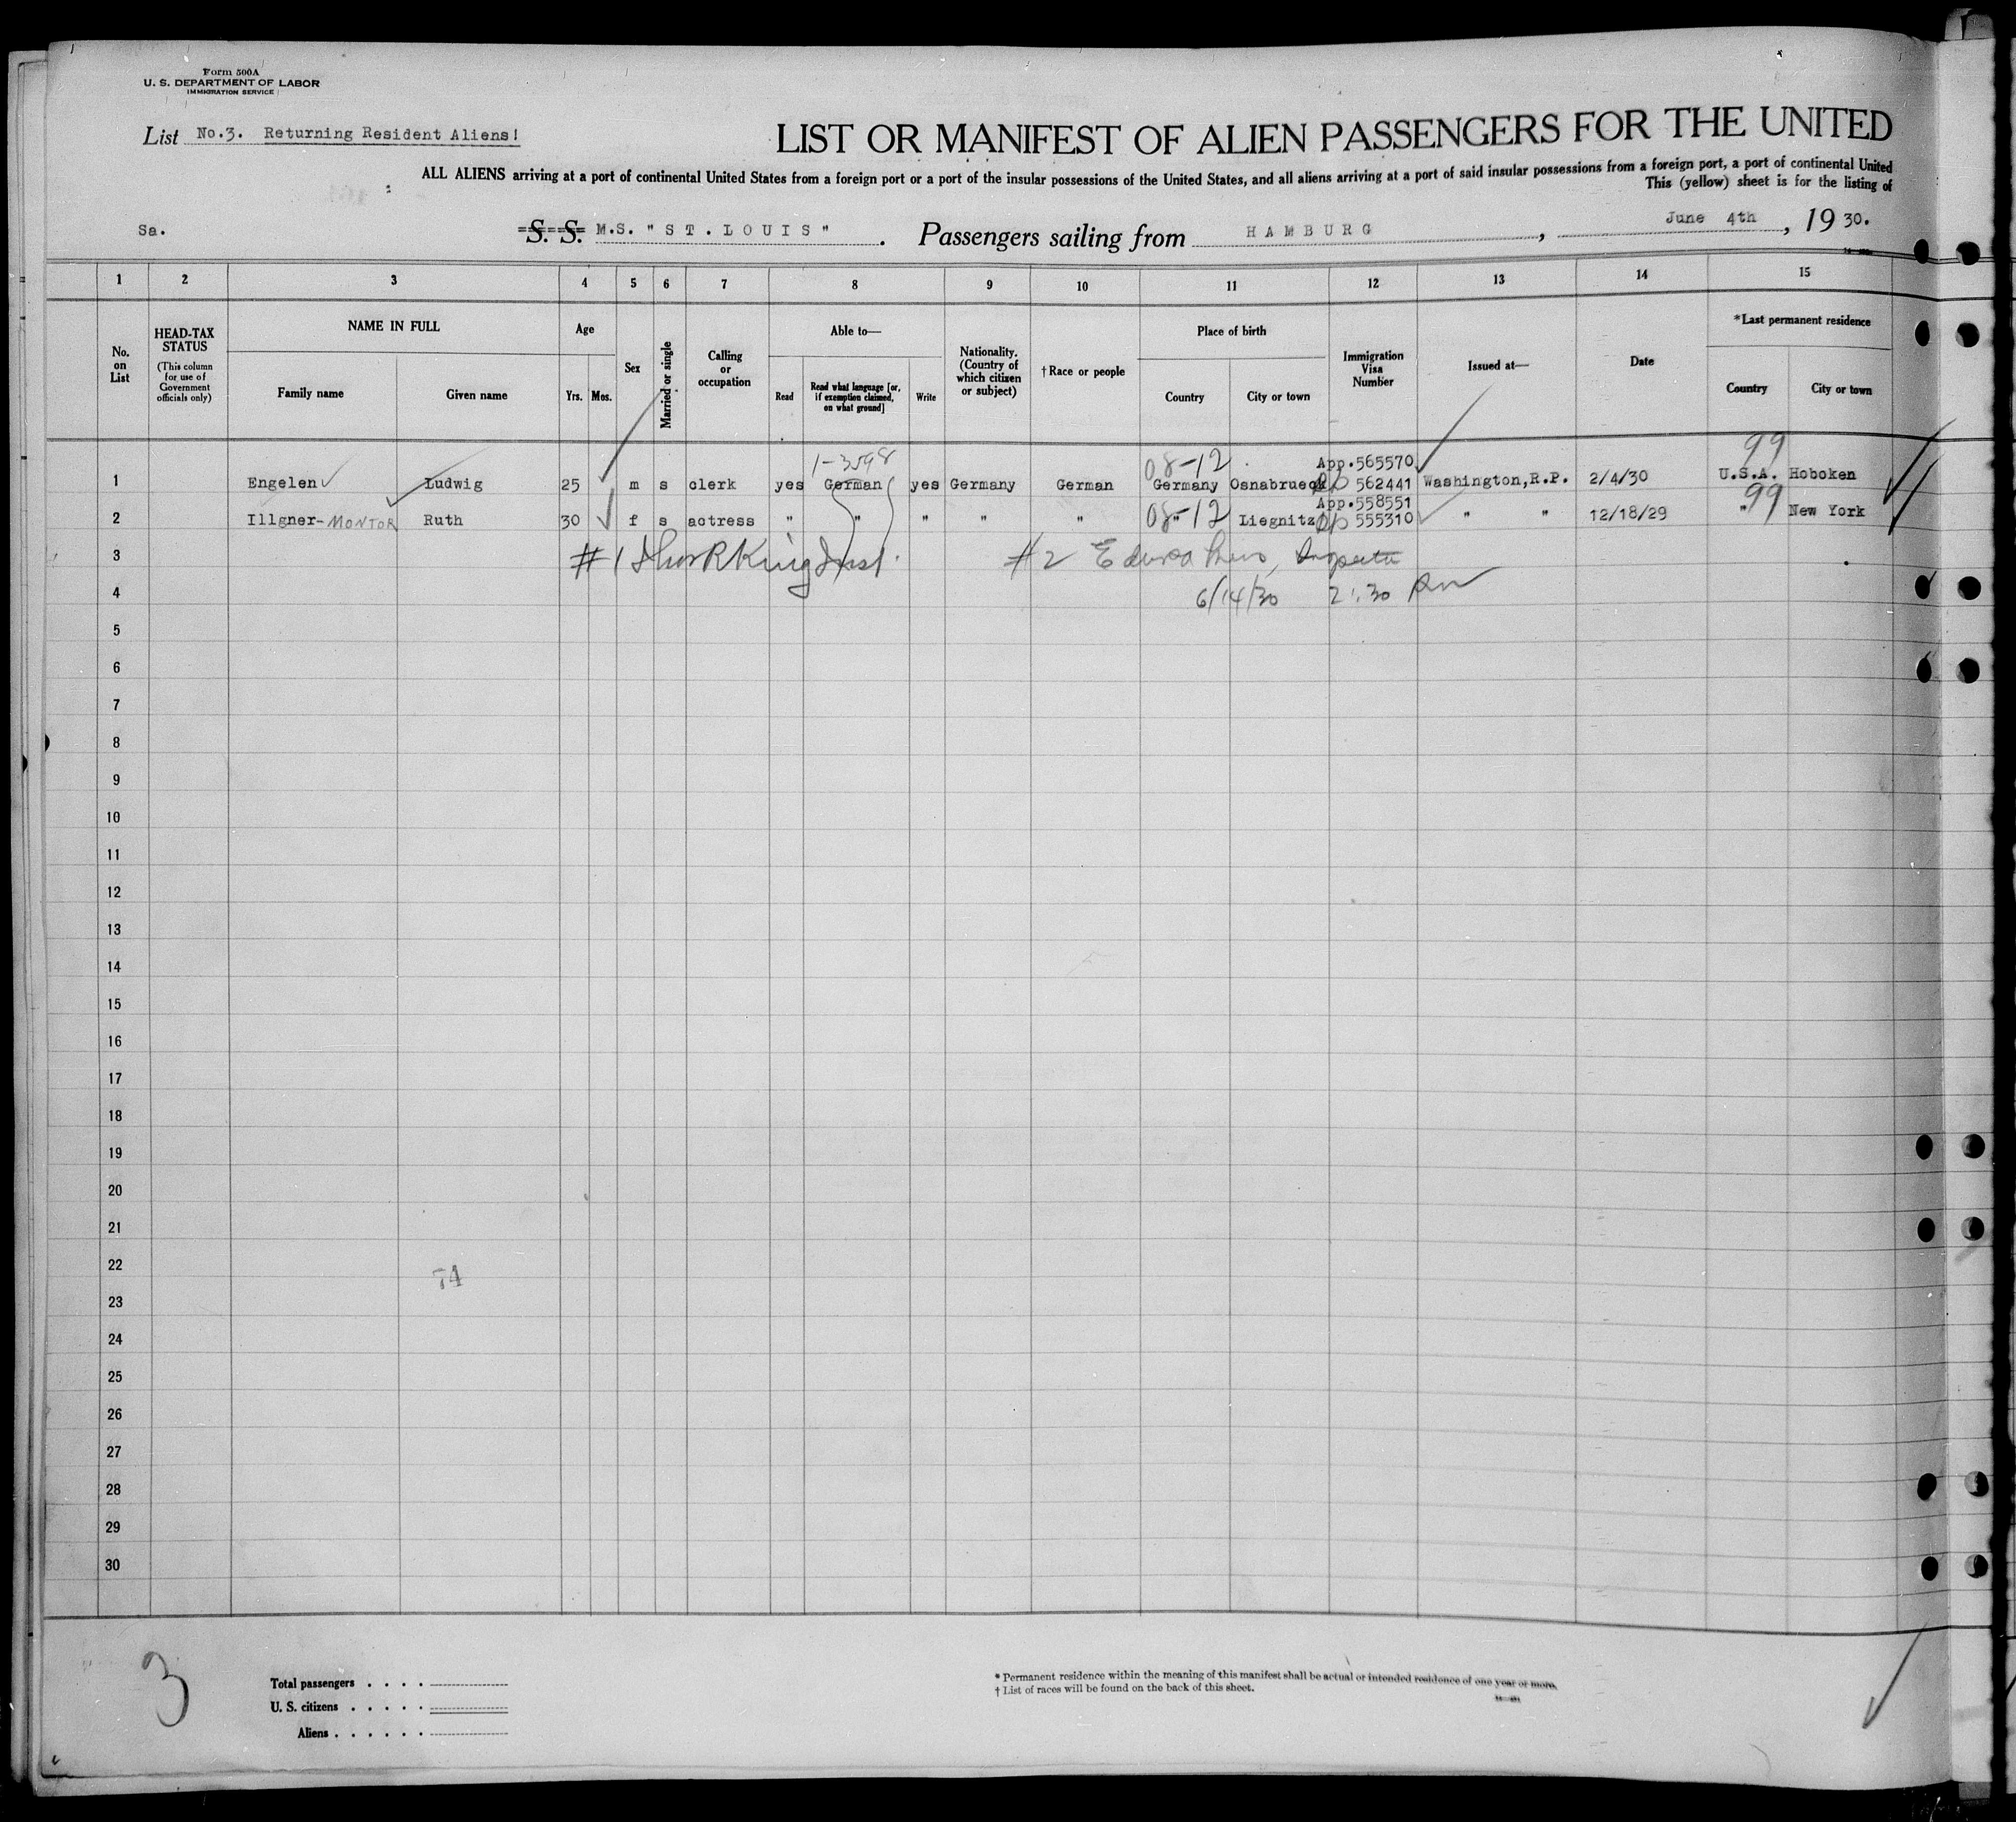 Form 500A
U. S. DEPARTMENT OF LABOR
IMMIGRATION SERVICE
List No.3. Returning Resident Aliens!
LIST OR MANIFEST OF ALIEN PASSENGERS FOR THE UNITED
ALL ALIENS arriving at a port of continental United States from a foreign port or a port of the insular possessions of the United States, and all aliens arriving at a port of said insular possessions from a foreign port, a port of continental United
This (yellow) sheet is for the listing of
Sa. S. S. M.S. "ST.LOUIS". Passengers sailing from HAMBURG, June 4th, 1930.
1 2 3 4 5 6 7 8 9 10 11 12 13 14 15
No. on List
HEAD-TAX STATUS (This column for use of Government officials only)
NAME IN FULL
Family name Given name
Age
Yrs. Mos.
Sex
Married or single
Calling or occupation
Able to—
Read Read what language [or, if exemption claimed, on what ground] Write
Nationality. (Country of which citizen or subject)
† Race or people
Place of birth
Country City or town
Immigration Visa Number
Issued at—
Date
*Last permanent residence
Country City or town
1-3598 08-12 App.565570 99
1 Engelen Ludwig 25 m s clerk yes German yes Germany German Germany Osnabrueck 562441 Washington,R.P. 2/4/30 U.S.A. Hoboken
08-12 App.558551 99
2 Illgner-MONTOR Ruth 30 f s actress " " " " " " Liegnitz 555310 " " 12/18/29 " New York
3 #1 King Insp. #2
4 6/14/30 2:30
5
6
7
8
9
10
11
12
13
14
15
16
17
18
19
20
21
22
74
23
24
25
26
27
28
29
30
3
Total passengers . . . .
U. S. citizens . . . . .
Aliens . . . . . .
* Permanent residence within the meaning of this manifest shall be actual or intended residence of one year or more.
† List of races will be found on the back of this sheet.